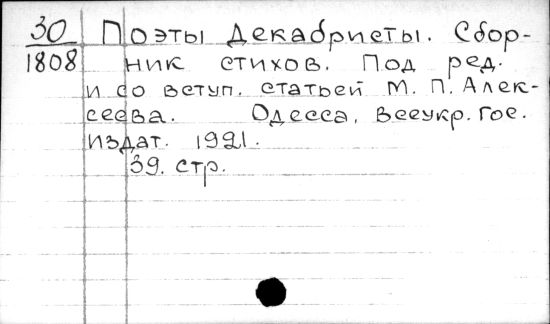 30 Поэты Декабристы. Сбор-
1808 ник стихов. Под ред.
и со вступ. статьей М. П. Алек-
сеева. Одесса, Всеукр. гос.
издат. 1921.
39. стр.